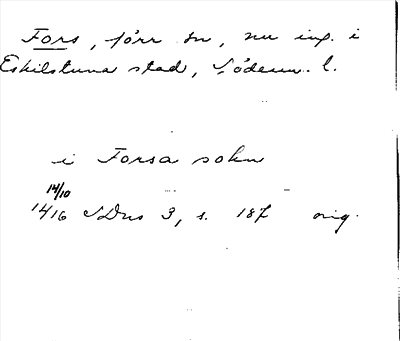 Fors, förr sn, nu ing. i
Eskilstuna stad, Söderm. l.
i Forsa sokn
14/10
1416 SDns 3, s. 187 orig.